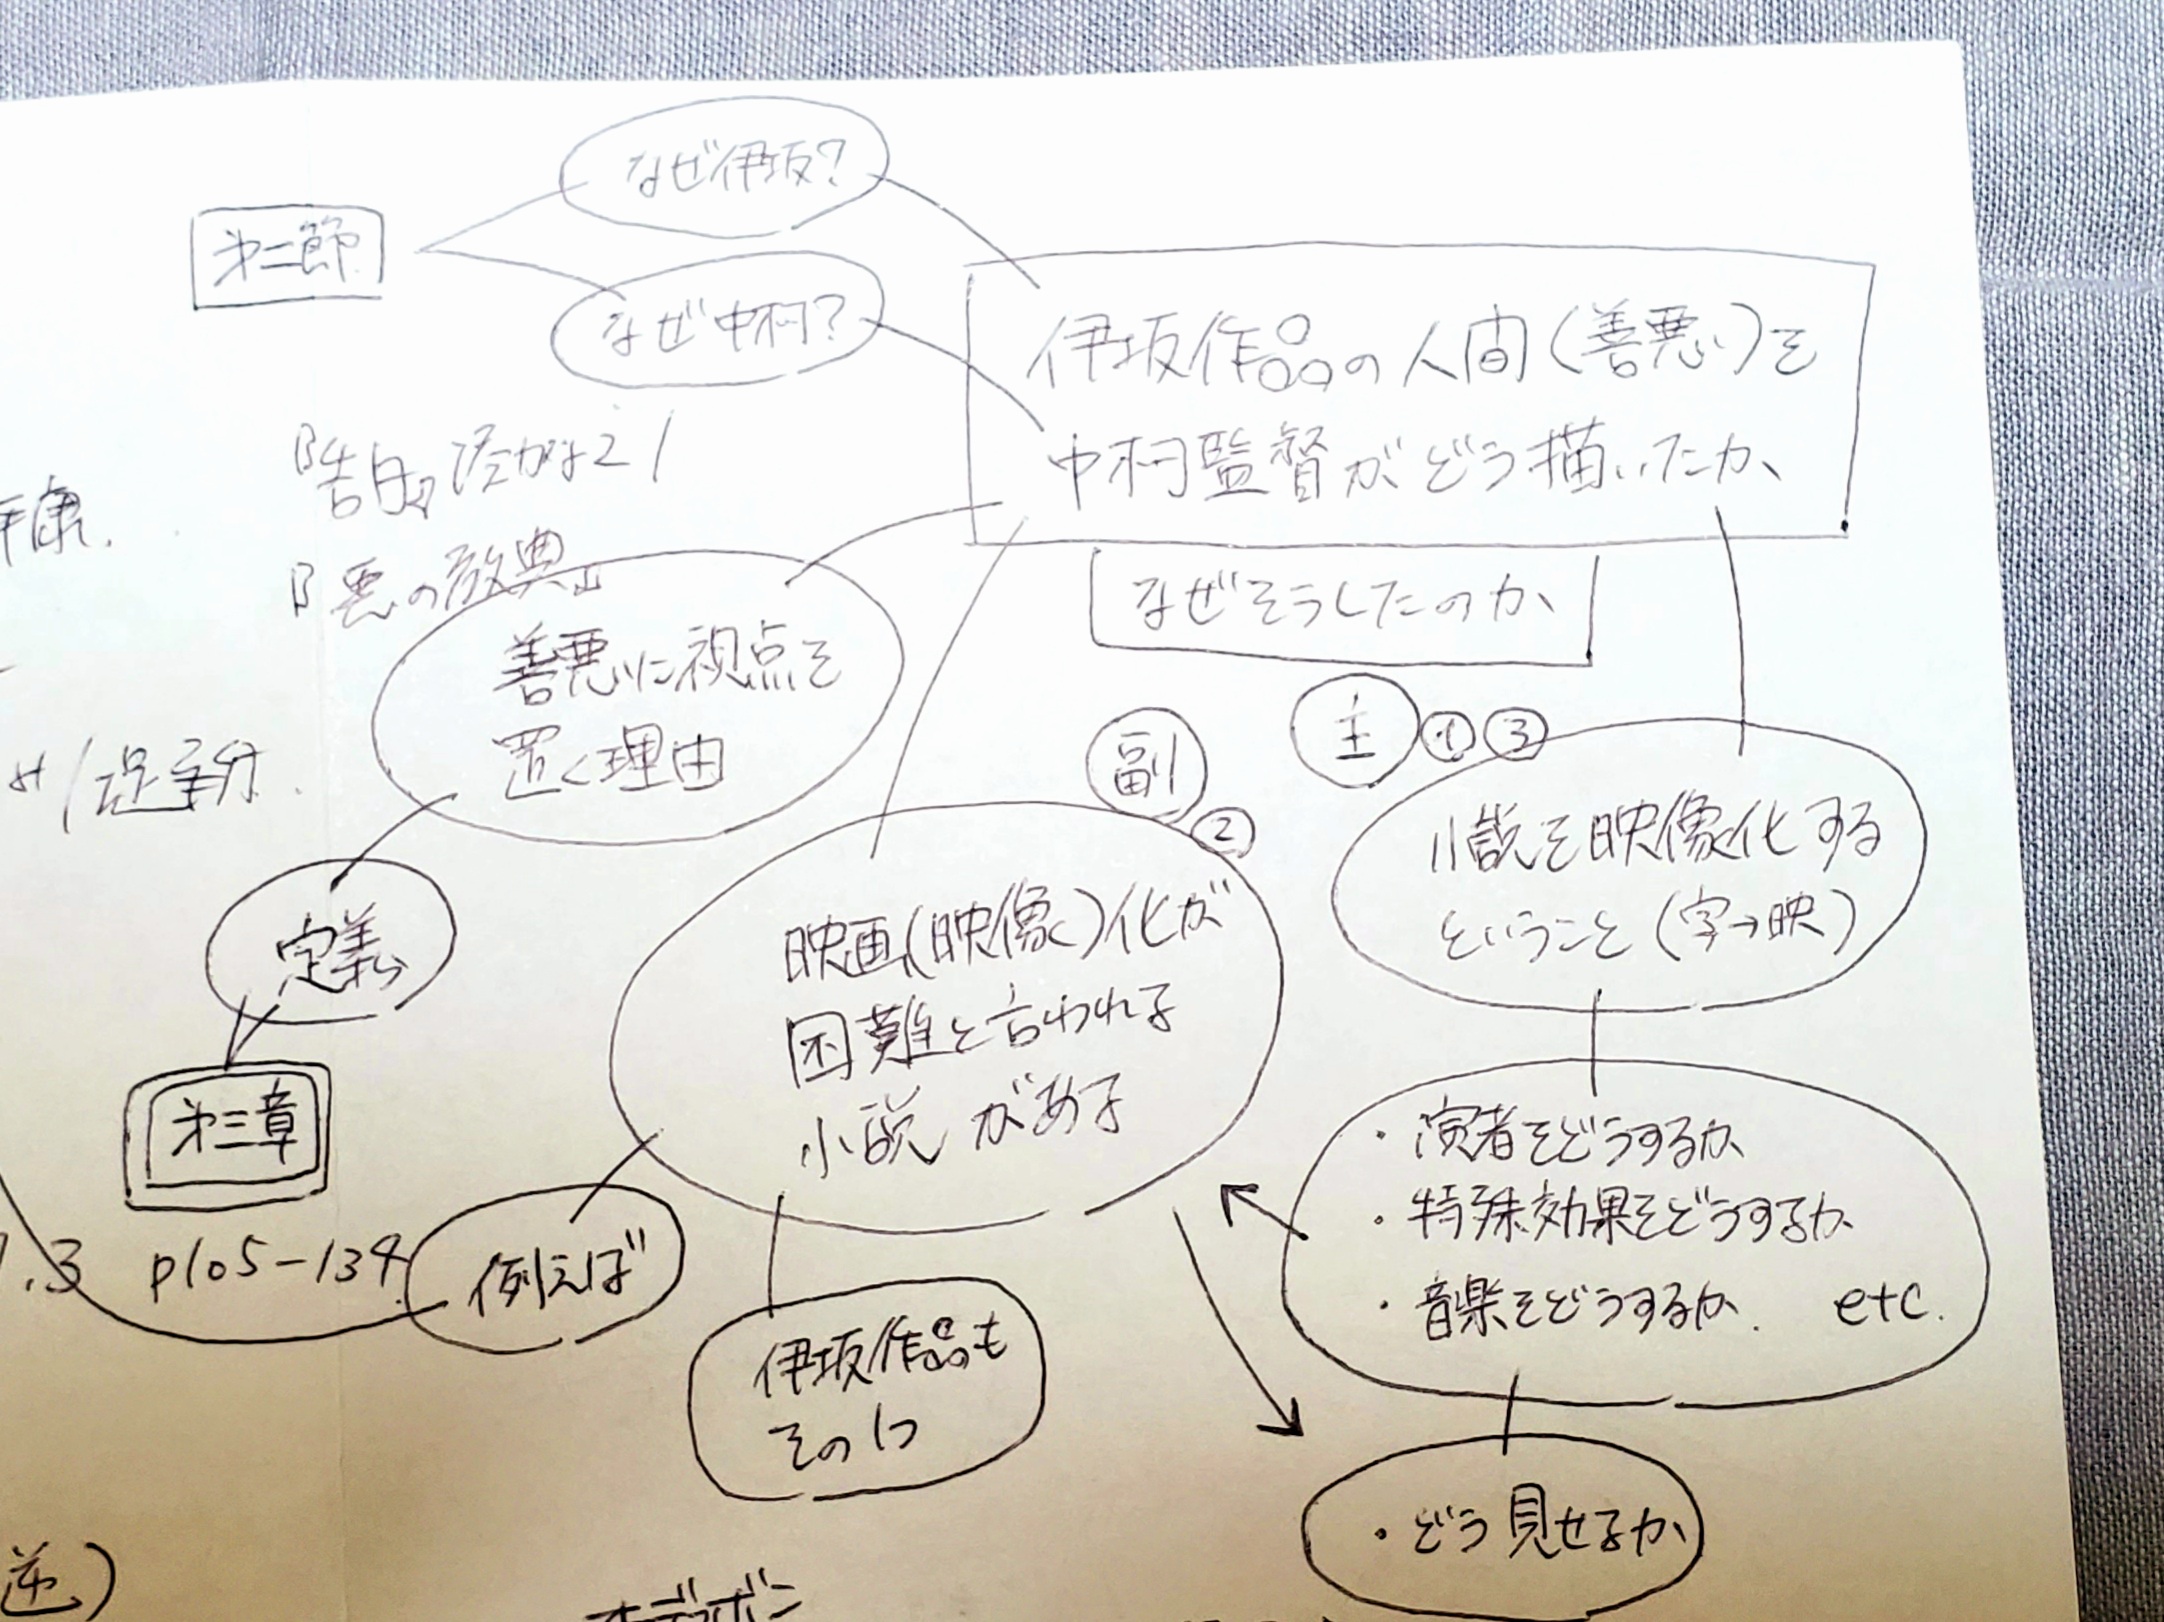 なぜ伊坂?
第二節
なぜ中村?
伊坂作品の人間(善悪)を
中村監督がどう描いたか
なぜそうしたのか
『告白』湊かなえ /
『悪の教典』
善悪に視点を
置く理由
定義
第三章
副
②
主
①③
小説を映像化する
ということ(字→映)
映画(映像)化が
困難と言われる
小説がある
・演者をどうするか
・特殊効果をどうするか
・音楽をどうするか. etc.
.3 p105-134
例えば
伊坂作品も
その1つ
・どう見せるか
逆)